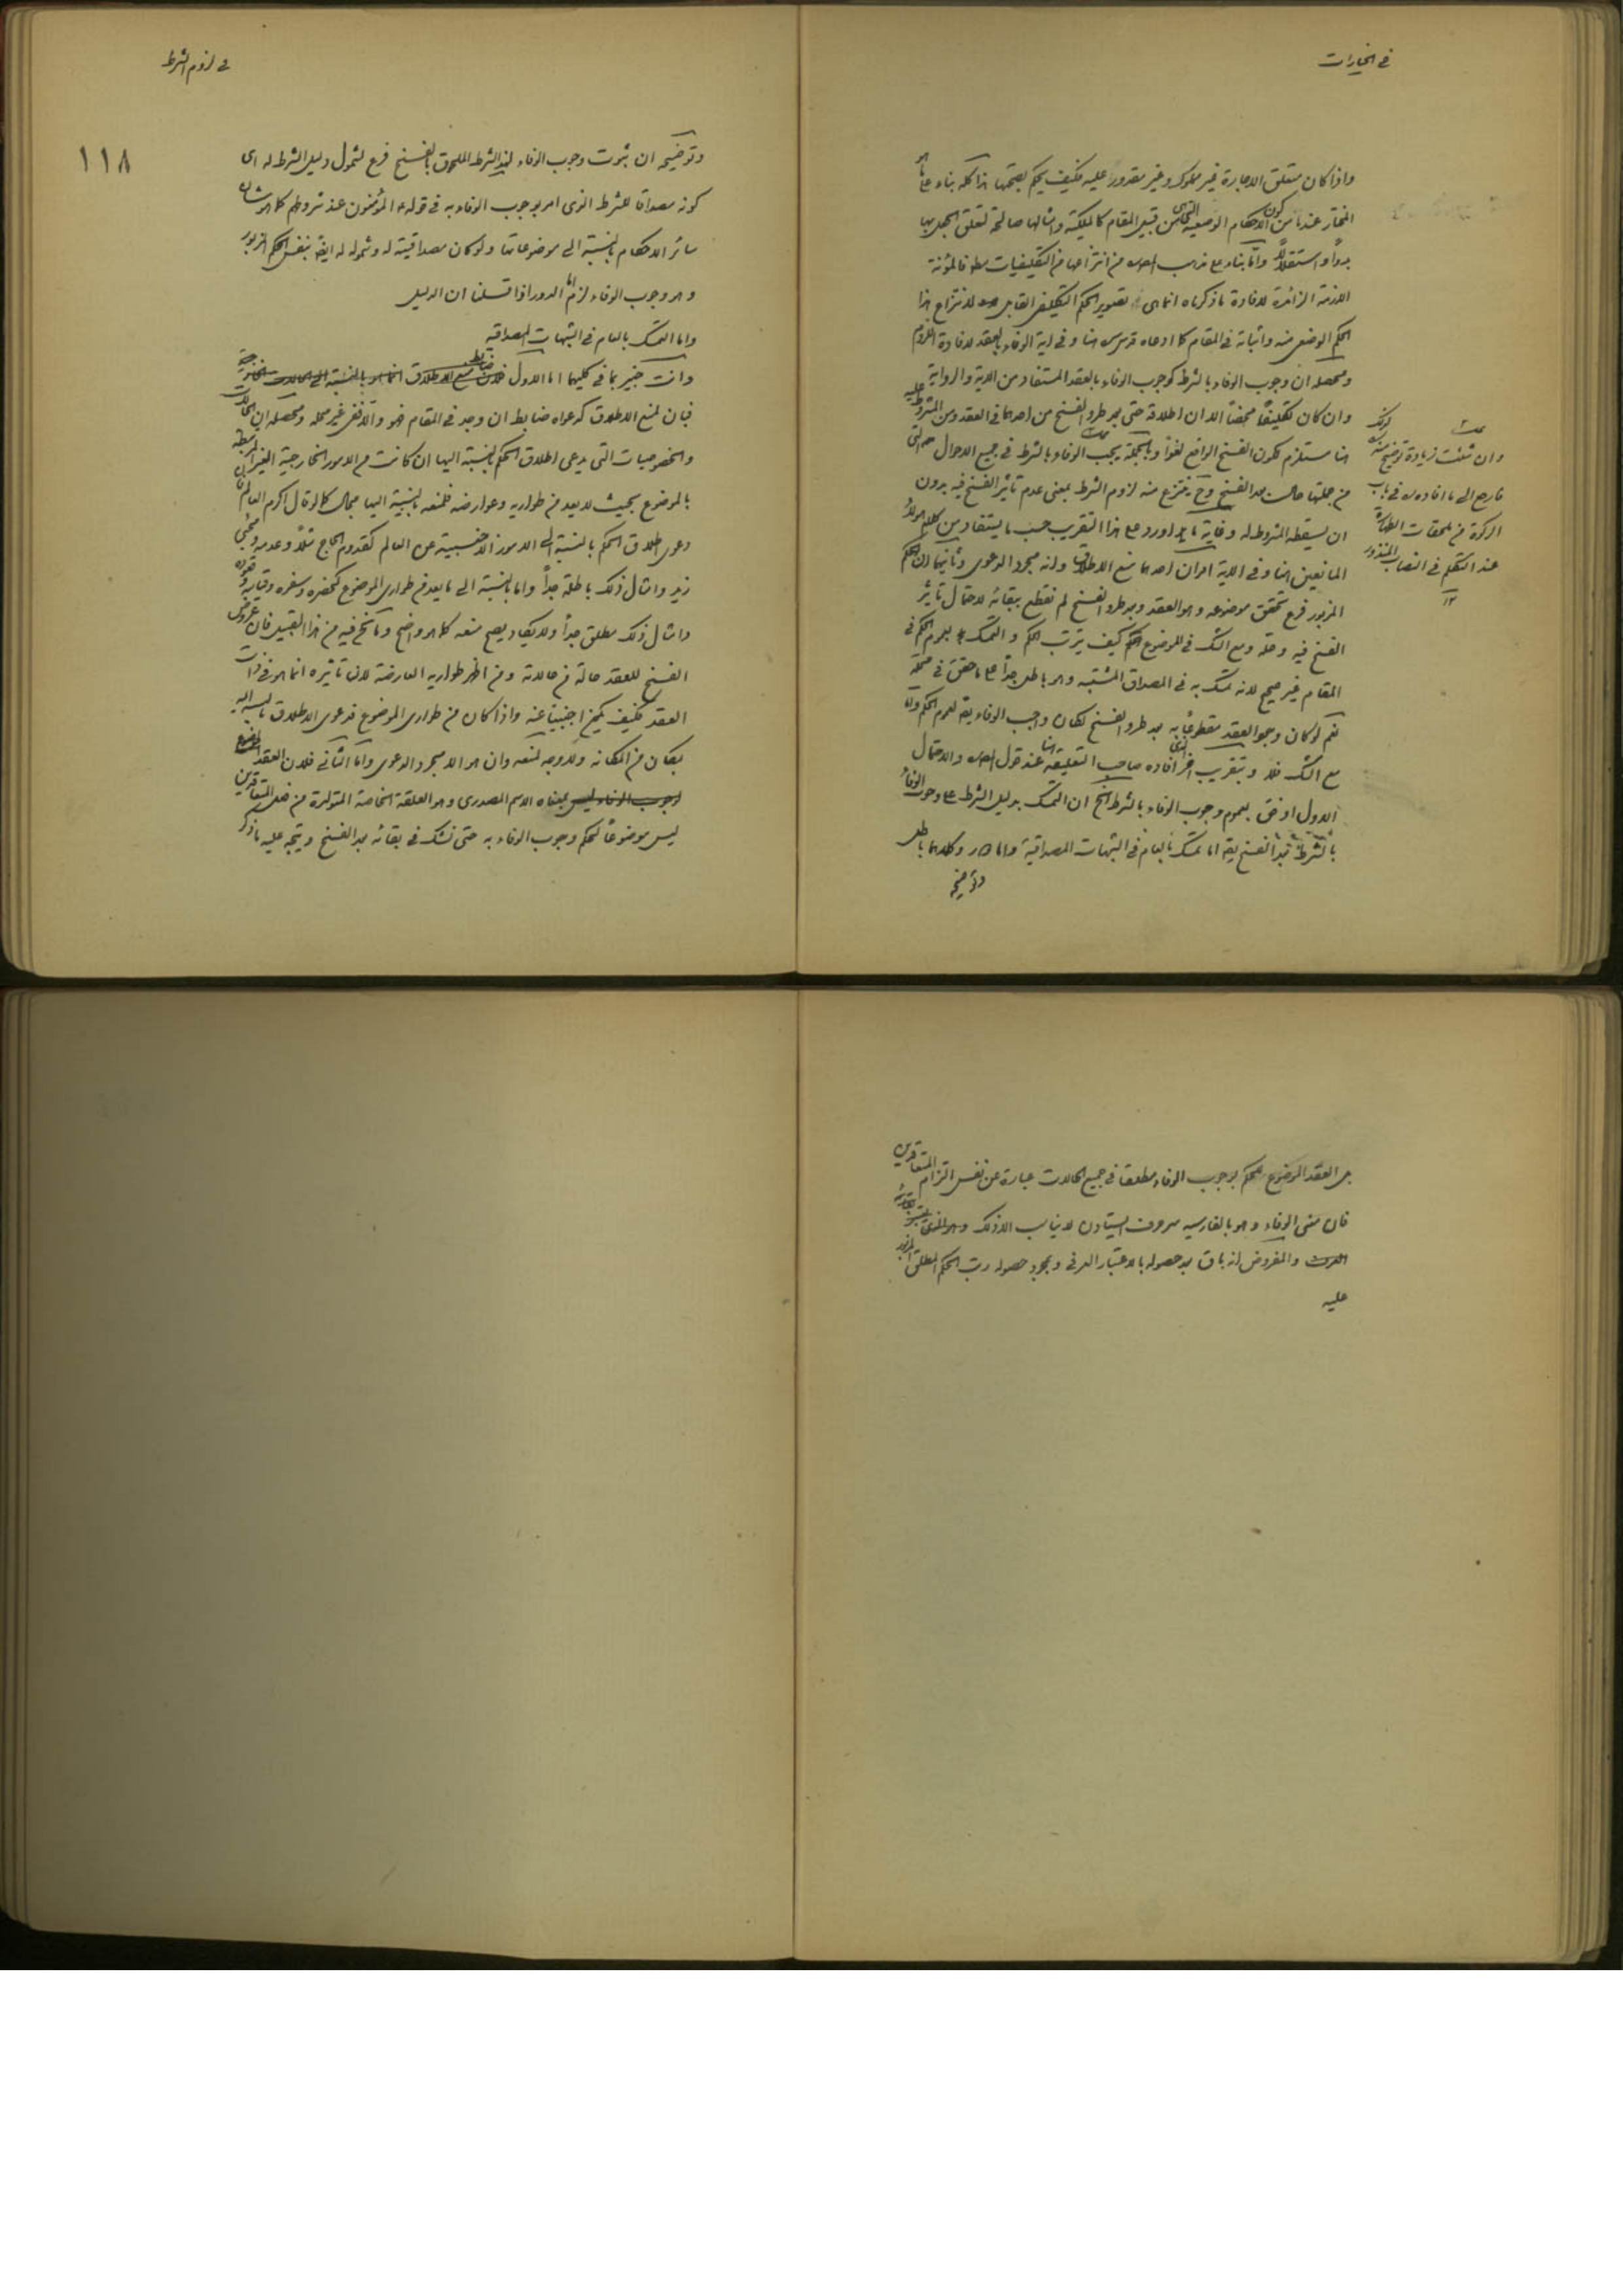 في الخيارات
واذا كان متعلق الاجارة غير مملوك وغير مقدور عليه فكيف يحكم بصحتها هذا كله بناء على ما هو
المختار عندنا من كون الاحكام الوضعية التي من قبيل المقام كالملكية وامثالها صالحة لتعلق الجعل بها
بدواً واستقلالاً واما بناء على مذهب من انتزاعها من التكليفيات فالمؤنة
اللازمة الزائدة لافادة ما ذكرناه انما هي تصوير الحكم التكليفي القابل لانتزاع هذا
الحكم الوضعي منه واثباته في المقام كما ادعاه قدس سره هنا وفي اية الوفاء بالعقد لافادة اللزوم
ومحصله ان وجوب الوفاء بالشرط كوجوب الوفاء بالعقد المستفاد من الاية والرواية
وان كان تكليفاً محضاً الا ان اطلاقه حتى بعد طرو الفسخ من احدهما في العقد ومن المشروط عليه
هنا مستلزم لكون الفسخ الواقع لغواً وبالجملة يجب الوفاء بالشرط في جميع الاحوال التي
من جملتها حالت بعد الفسخ وح ينتزع منه لزوم الشرط بمعنى عدم تاثير الفسخ فيه بدون
ان يسقطه المشروط له وغاية ما اورد على هذا التقريب حسب ما يستفاد من كلام هؤلاء
المانعين هنا وفي الاية امران احدهما منع الاطلاق وانه مجرد الدعوى وثانيهما ان الحكم
المزبور فرع تحقق موضوعه وهو العقد وبعد طرو الفسخ لم نقطع ببقائه لاحتمال تأثير
الفسخ فيه وحله ومع الشك في الموضوع كيف يترتب الحكم والتمسك بعموم الحكم في
المقام غير صحيح لانه تمسك به في المصداق المشتبه وهو باطل جداً على ما حقق في محله
نعم لو كان وجود العقد مقطوعاً به بعد طرو الفسخ لكان واجب الوفاء به لعموم الحكم واما
مع الشك فلا وبتقريب اخر الذي افاده صاحب التعليقة هنا عند قول والاحتمال
الاول اوفق بعموم وجوب الوفاء بالشرط الخ ان التمسك بدليل الشرط على وجوب الوفاء
بالشرط بعد الفسخ اما تمسك بالعام في الشبهات المصداقية واما دور وكلاهما باطل
وتوضيحه
وان شئت زيادة توضيح لذلك
فارجع الى ما افاده في باب
الزكوة من ملحقات
عند التكلم في النصاب المنذور
١٢
في لزوم الشرط
١١٨
وتوضيحه ان ثبوت وجوب الوفاء لهذا الشرط الملحوق بالفسخ فرع لشمول دليل الشرط له اي
كونه مصداقاً للشرط الذي امر بوجوب الوفاء به في قوله ع المؤمنون عند شروطهم كما هو شأن
سائر الاحكام بالنسبة الى موضوعاتها ولو كان مصداقيته له وشموله له ايضاً بنفس الحكم المزبور
وهو وجوب الوفاء لزم الدور اذا قلنا ان الدليل
واما التمسك بالعام في الشبهات المصداقية
وانت خبير بما في كليهما اما الاول
فبان لمنع الاطلاق كدعواه ضابط ان وجد في المقام فهو والا فهي غير محله ومحصله ان الحالات
والخصوصيات التي يدعى اطلاق الحكم بالنسبة اليها ان كانت من الامور الخارجية الغير المرتبطة
بالموضوع بحيث لا يعد من طواريه وعوارضه فلمنعه بالنسبة اليها مجال كما لو قال اكرم العالم فان
دعوى اطلاق الحكم بالنسبة الى الامور الاجنبية عن العالم كقدوم الحاج مثلا وعدمه ومجيء
زيد وامثال ذلك باطلة جداً واما بالنسبة الى ما يعد من طواري الموضوع كحضره وسفره وقيامه وقعوده
وامثال ذلك مطلق جداً ولا يكاد يصح منعه كما هو واضح وما نحن فيه من هذا القبيل فان عروض
الفسخ للعقد حالة من حالاته ومن اظهر طواريه العارضة لان تأثيره انما هو في ذات
العقد فكيف يكون اجنبياً عنه واذا كان من طواري الموضوع فدعوى الاطلاق بالنسبة اليه
بمكان من الامكان ولا وجه لمنعه وان هو الا مجرد الدعوى واما الثاني فلان العقد
بمعناه الاسم المصدري وهو العلقة الخاصة المتولدة من فعل المتعاقدين
ليس موضوعاً لحكم وجوب الوفاء به حتى نشك في بقائه بعد الفسخ ويتجه عليه ما ذكر
بل العقد الموضوع للحكم بوجوب الوفاء مطلقا في جميع الحالات عبارة عن نفس التزام المتعاقدين
فان معنى الوفاء وهو بالفارسيه ايستادن لا يناسب الا ذلك
والمفروض انه باق بعد حصوله بالاعتبار العرفي وبمجرد حصوله رتب الحكم المطلق المزبور
عليه